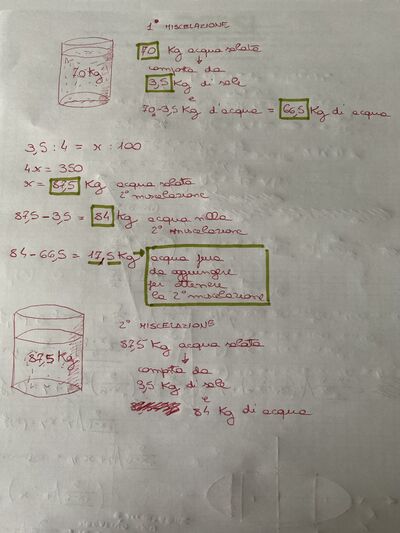 1° MISCELAZIONE
70 Kg
70 Kg acqua salata
composta da
3,5 Kg di sale
e
70-3,5 Kg d'acqua = 66,5 Kg di acqua
3,5 : 4 = x : 100
4x = 350
x = 87,5 Kg acqua salata
2° miscelazione
87,5 - 3,5 = 84 Kg acqua nella
2° miscelazione
84 - 66,5 = 17,5 Kg → acqua pura
da aggiungere
per ottenere
la 2° miscelazione
2° MISCELAZIONE
87,5 Kg
87,5 Kg acqua salata
composta da
3,5 Kg di sale
e
84 Kg di acqua